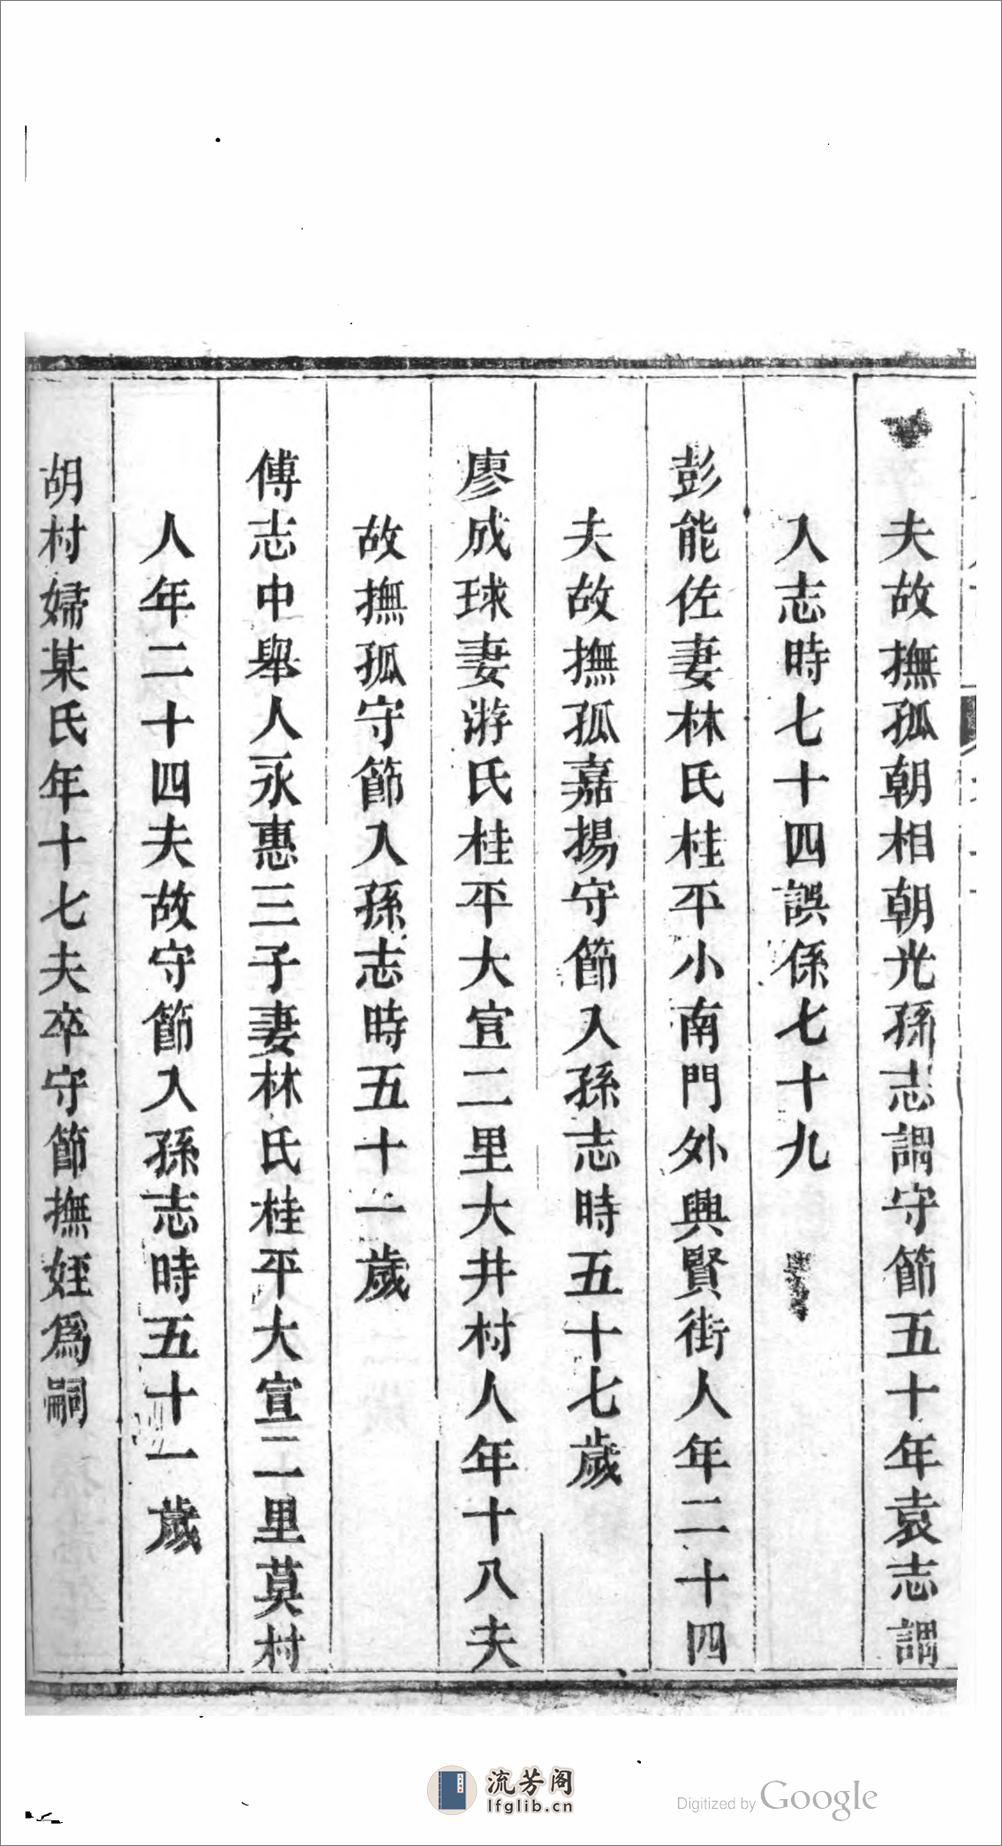 夫故撫孤朝相朝光孫志謂守節五十年袁志謂
入志時七十四誤係七十九
彭能佐妻林氏桂平小南門外興賢街人年二十四
夫故撫孤嘉揚守節入孫志時五十七歲
廖成球妻游氏桂平大宣二里大井村人年十八夫
故撫孤守節入孫志時五十一歲
傅志中舉人永惠三子妻林氏桂平大宣二里莫村
人年二十四夫故守節入孫志時五十一歲
胡村婦某氏年十七夫卒守節撫姪為嗣
流芳阁
lfglib.cn
Digitized by Google